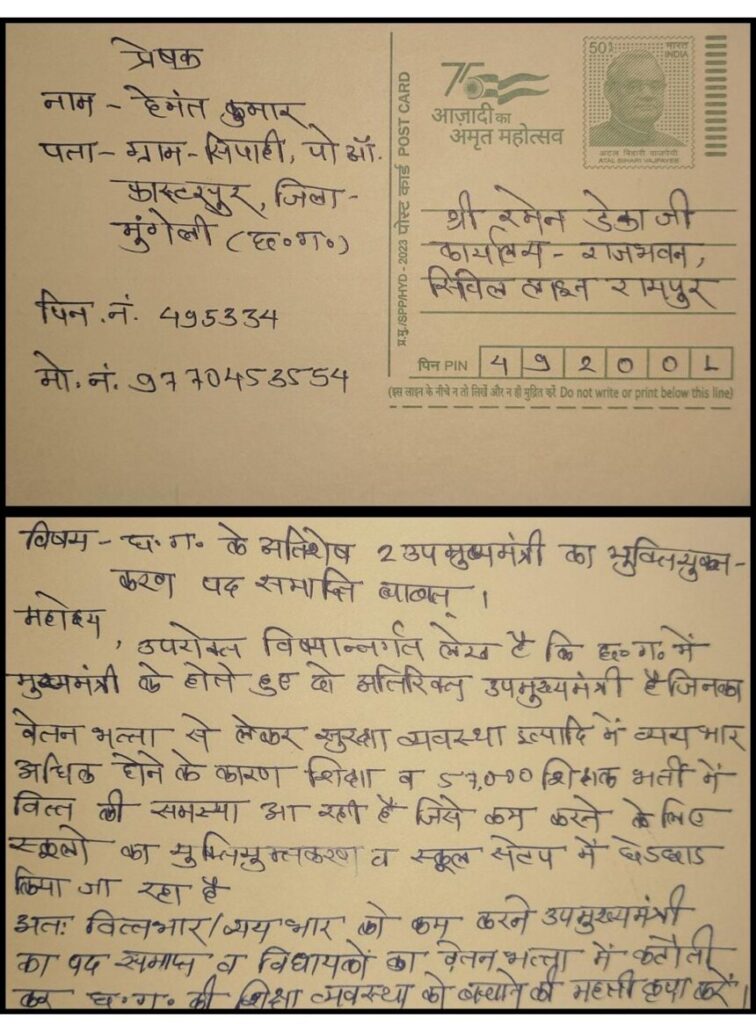 प्रेषक
नाम - हेमंत कुमार
पता - ग्राम - सिपाही, पो ऑ.
फास्टरपुर, जिला -
मुंगेली (छ०ग०)
पिन.नं. 495334
मो.नं. 9770453554
प्र.मु./SPP/HYD - 2023 पोस्ट कार्ड POST CARD
75
आज़ादी का
अमृत महोत्सव
50
भारत
INDIA
अटल बिहारी वाजपेयी
ATAL BIHARI VAJPAYEE
श्री रमेन डेका जी
कार्यालय - राजभवन,
सिविल लाइन रायपुर
पिन PIN 492001
(इस लाइन के नीचे न तो लिखें और न ही मुद्रित करें Do not write or print below this line)
विषय - छ.ग. के अतिशेष 2 उपमुख्यमंत्री का युक्तियुक्त-
करण पद समाप्ति बाबत् ।
महोदय
, उपरोक्त विषयान्तर्गत लेख है कि छ.ग. में
मुख्यमंत्री के होते हुए दो अतिरिक्त उपमुख्यमंत्री है जिनका
वेतन भत्ता से लेकर सुरक्षा व्यवस्था इत्यादि में व्यय भार
अधिक होने के कारण शिक्षा व 57,000 शिक्षक भर्ती में
वित्त की समस्या आ रही है जिसे कम करने के लिए
स्कूलो का युक्तियुक्तकरण व स्कूल सेटप में छेडछाड
किया जा रहा है
अतः वित्तभार/व्यय भार को कम करने उपमुख्यमंत्री
का पद समाप्त व विधायकों का वेतन भत्ता में कटौती
कर छ.ग. की शिक्षा व्यवस्था को बचाने की महती कृपा करें ।